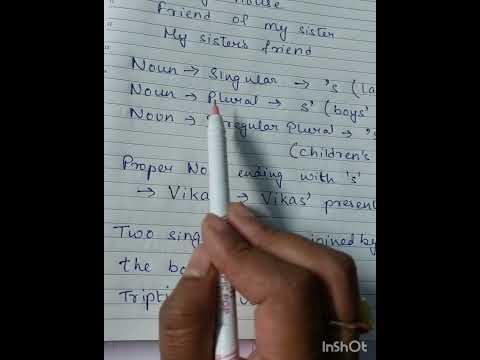 house
Friend of my sister
My sister's friend
Noun → Singular → 's (la
Noun → Plural → s' (boys'
Noun → Irregular Plural → 's
(children's
Proper No ending with 's'
→ Vika → Vikas' present
Two sing joined by
the bo
Tripti
InShOt